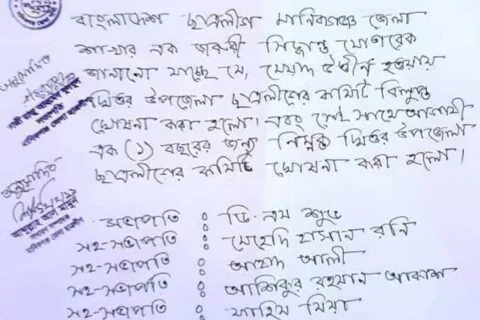 বাংলাদেশ ছাত্রলীগ মানিকগঞ্জ জেলা
শাখার এক জরুরী সিদ্ধান্ত মোতাবেক
জানানো যাচ্ছে যে, মেয়াদ উত্তীর্ন হওয়ায়
ঘিওর উপজেলা ছাত্রলীগের কমিটি বিলুপ্ত
ঘোষনা করা হলো। এবং সেই সাথে আগামী
এক (১) বছরের জন্য নিম্নক্ত ঘিওর উপজেলা
ছাত্রলীগের কমিটি ঘোষনা করা হলো।
অনুমোদিত
অনুমোদিত
সভাপতি : ডি এম শুভ
সহ-সভাপতি : মেহেদি হাসান রনি
সহ-সভাপতি : আযাদ আলী
সহ-সভাপতি : আশিকুর রহমান আকাশ
সহ-সভাপতি : ফাহিম মিয়া